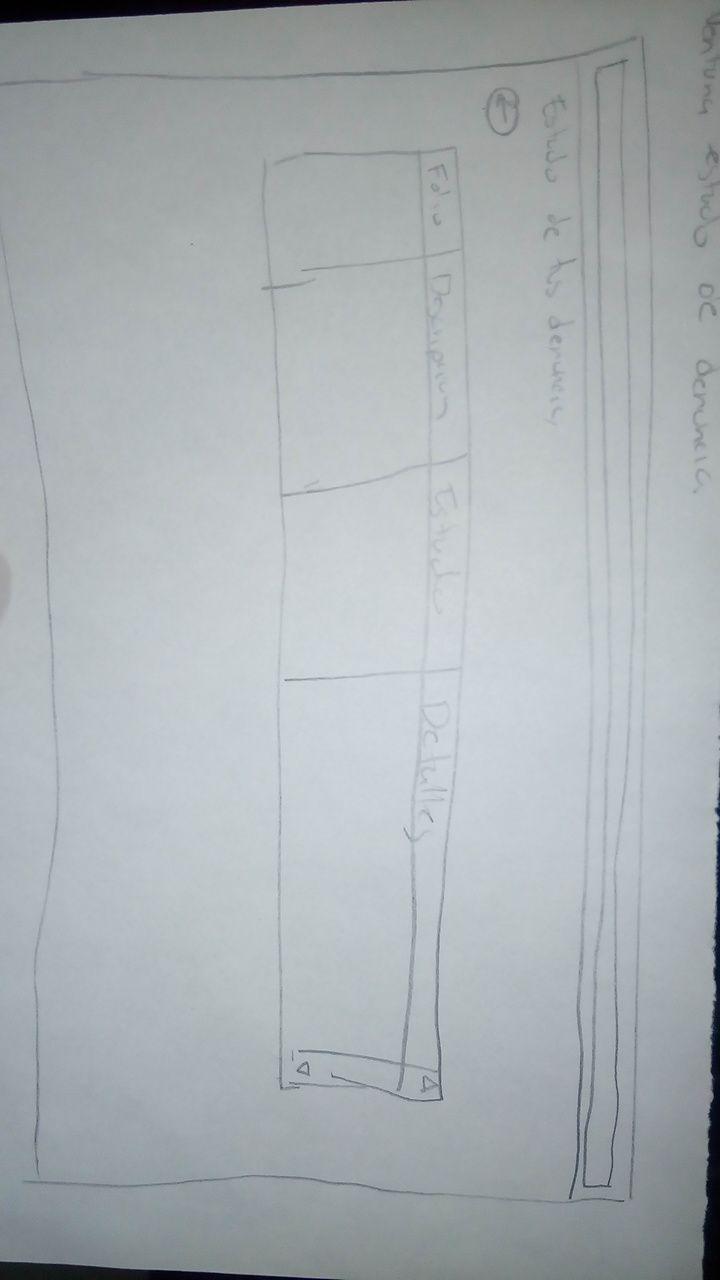 Ventana estado de denuncia
Estado de tus denuncias
Folio Descripcion Estado Detalles